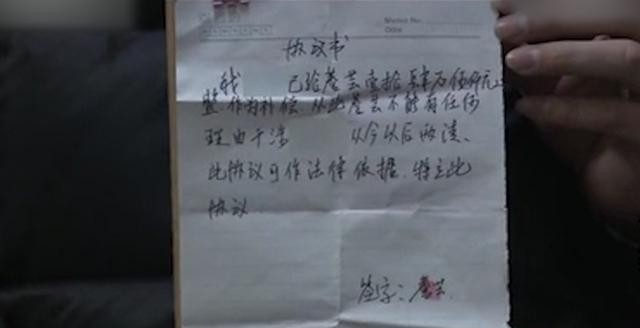 Memo No.
Date
协议书
我 已给 芸 拾 万伍仟元
整作为补偿,从此 芸不能有任何
理由干涉 从今以后两清、
此协议可作法律依据.特立此
协议
签字: 芸